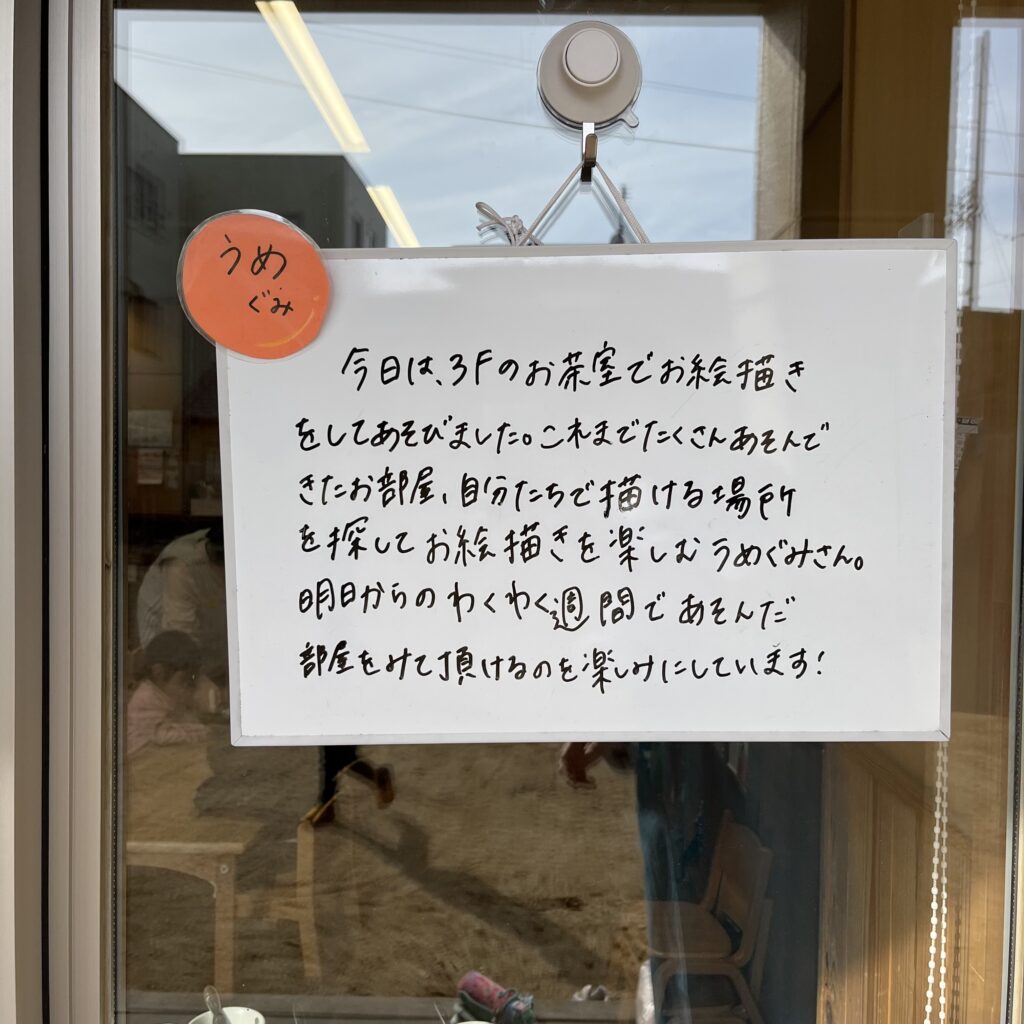 うめ
ぐみ
今日は、3Fのお茶室でお絵描き
をしてあそびました。これまでたくさんあそんで
きたお部屋、自分たちで描ける場所
を探してお絵描きを楽しむうめぐみさん。
明日からのわくわく週間であそんだ
部屋をみて頂けるのを楽しみにしています!